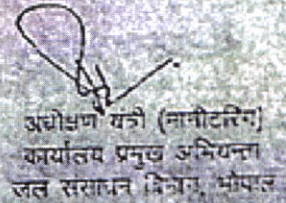 अधीक्षण यंत्री (मानीटरिंग)
कार्यालय प्रमुख अभियन्ता
जल संसाधन विभाग, भोपाल